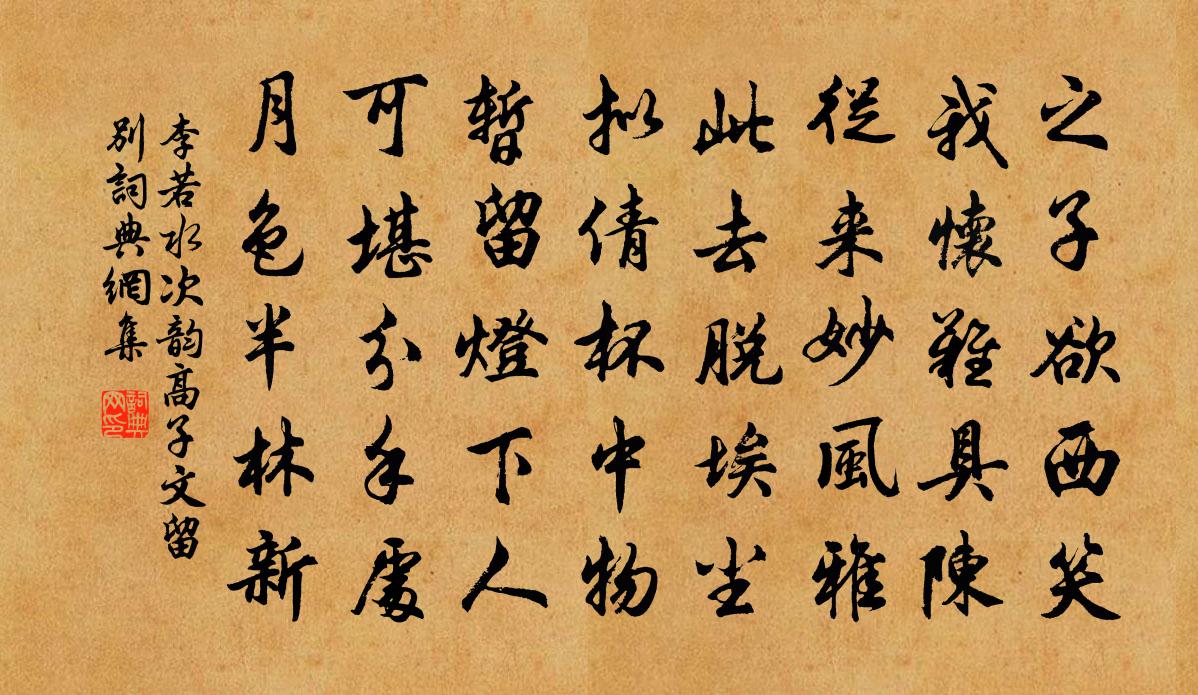 之子欲西笑
我懷難具陳
從来妙風雅
此去脱埃尘
拟倩杯中物
暫留燈下人
可堪分手處
月色半林新
李若水次韵高子文留
別詞典網集
詞典
网印